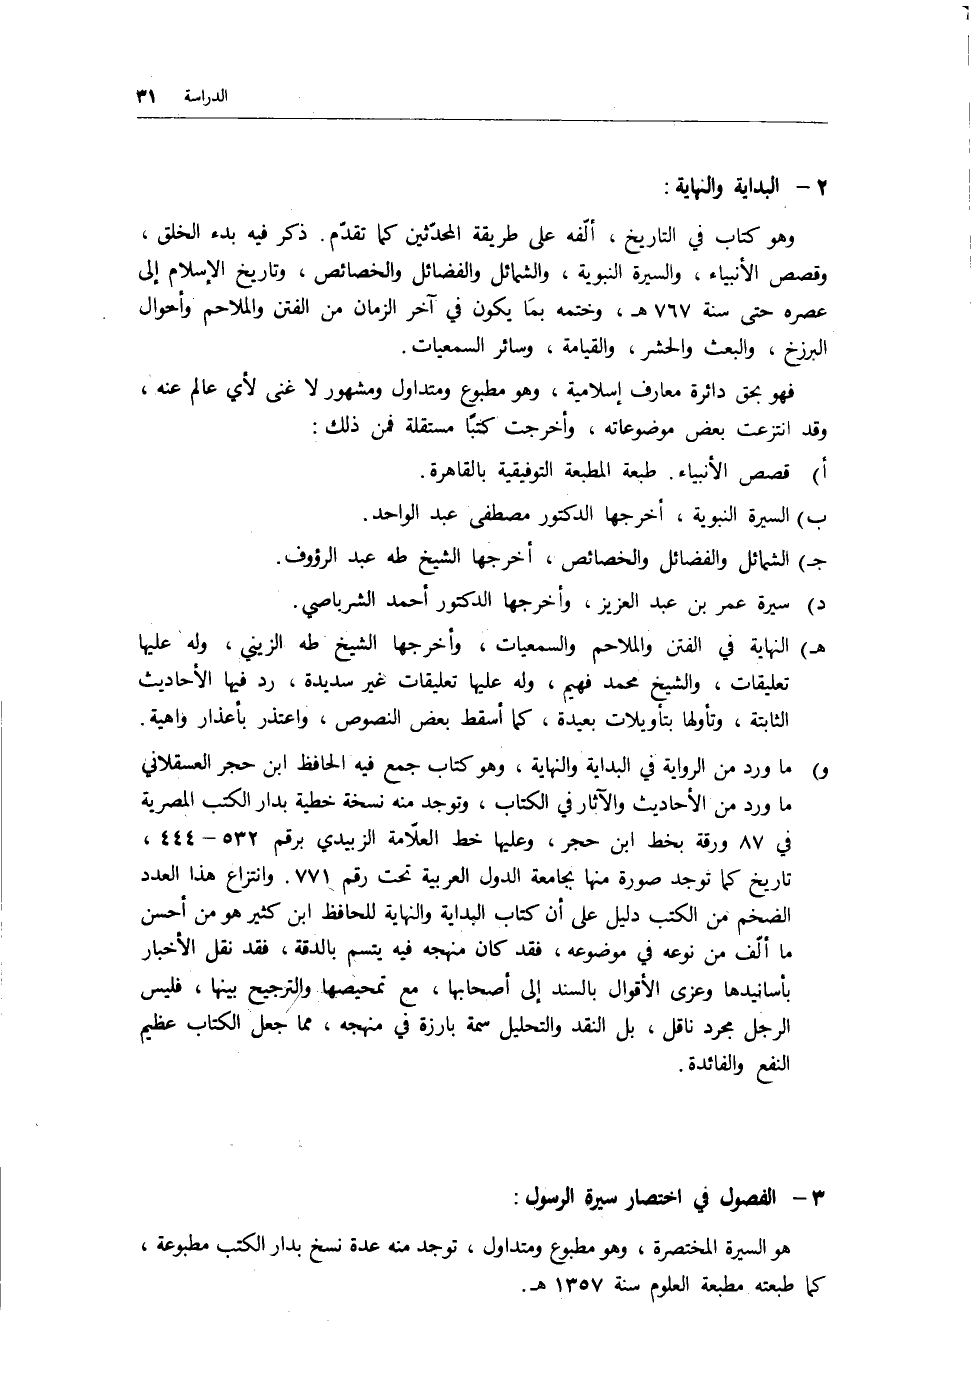 الدراسة ٣١
٢ - البداية والنهاية :
وهو كتاب في التاريخ ، ألّفه على طريقة المحدّثين كما تقدّم. ذكر فيه بدء الخلق ،
وقصص الأنبياء ، والسيرة النبوية ، والشمائل والفضائل والخصائص ، وتاريخ الإسلام إلى
عصره حتى سنة ٧٦٧ هـ ، وختمه بما يكون في آخر الزمان من الفتن والملاحم وأحوال
البرزخ ، والبعث والحشر ، والقيامة ، وسائر السمعيات.
فهو بحق دائرة معارف إسلامية ، وهو مطبوع ومتداول ومشهور لا غنى لأي عالم عنه ،
وقد انتزعت بعض موضوعاته ، وأخرجت كتبًا مستقلة فمن ذلك :
أ) قصص الأنبياء. طبعة المطبعة التوفيقية بالقاهرة.
ب) السيرة النبوية ، أخرجها الدكتور مصطفى عبد الواحد.
جـ) الشمائل والفضائل والخصائص ، أخرجها الشيخ طه عبد الرؤوف.
د) سيرة عمر بن عبد العزيز ، وأخرجها الدكتور أحمد الشرباصي.
هـ) النهاية في الفتن والملاحم والسمعيات ، وأخرجها الشيخ طه الزيني ، وله عليها
تعليقات ، والشيخ محمد فهيم ، وله عليها تعليقات غير سديدة ، رد فيها الأحاديث
الثابتة ، وتأولها بتأويلات بعيدة ، كما أسقط بعض النصوص ، واعتذر بأعذار واهية.
و) ما ورد من الرواية في البداية والنهاية ، وهو كتاب جمع فيه الحافظ ابن حجر العسقلاني
ما ورد من الأحاديث والآثار في الكتاب ، وتوجد منه نسخة خطية بدار الكتب المصرية
في ٨٧ ورقة بخط ابن حجر ، وعليها خط العلّامة الزبيدي برقم ٥٣٢ - ٤٤٤ ،
تاريخ كما توجد صورة منها بجامعة الدول العربية تحت رقم ٧٧١. وانتزاع هذا العدد
الضخم من الكتب دليل على أن كتاب البداية والنهاية للحافظ ابن كثير هو من أحسن
ما ألّف من نوعه في موضوعه ، فقد كان منهجه فيه يتسم بالدقة ، فقد نقل الأخبار
بأسانيدها وعزى الأقوال بالسند إلى أصحابها ، مع تمحيصها والترجيح بينها ، فليس
الرجل مجرد ناقل ، بل النقد والتحليل سمة بارزة في منهجه ، مما جعل الكتاب عظيم
النفع والفائدة.
٣ - الفصول في اختصار سيرة الرسول :
هو السيرة المختصرة ، وهو مطبوع ومتداول ، توجد منه عدة نسخ بدار الكتب مطبوعة ،
كما طبعته مطبعة العلوم سنة ١٣٥٧ هـ.